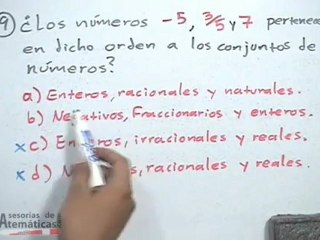 9) ¿Los números -5, 3/5 y 7 pertenecen
en dicho orden a los conjuntos de
números?
a) Enteros, racionales y naturales.
b) Negativos, Fraccionarios y enteros.
x c) irracionales y reales.
x d) racionales y reales.
sesorias de
atemáticas